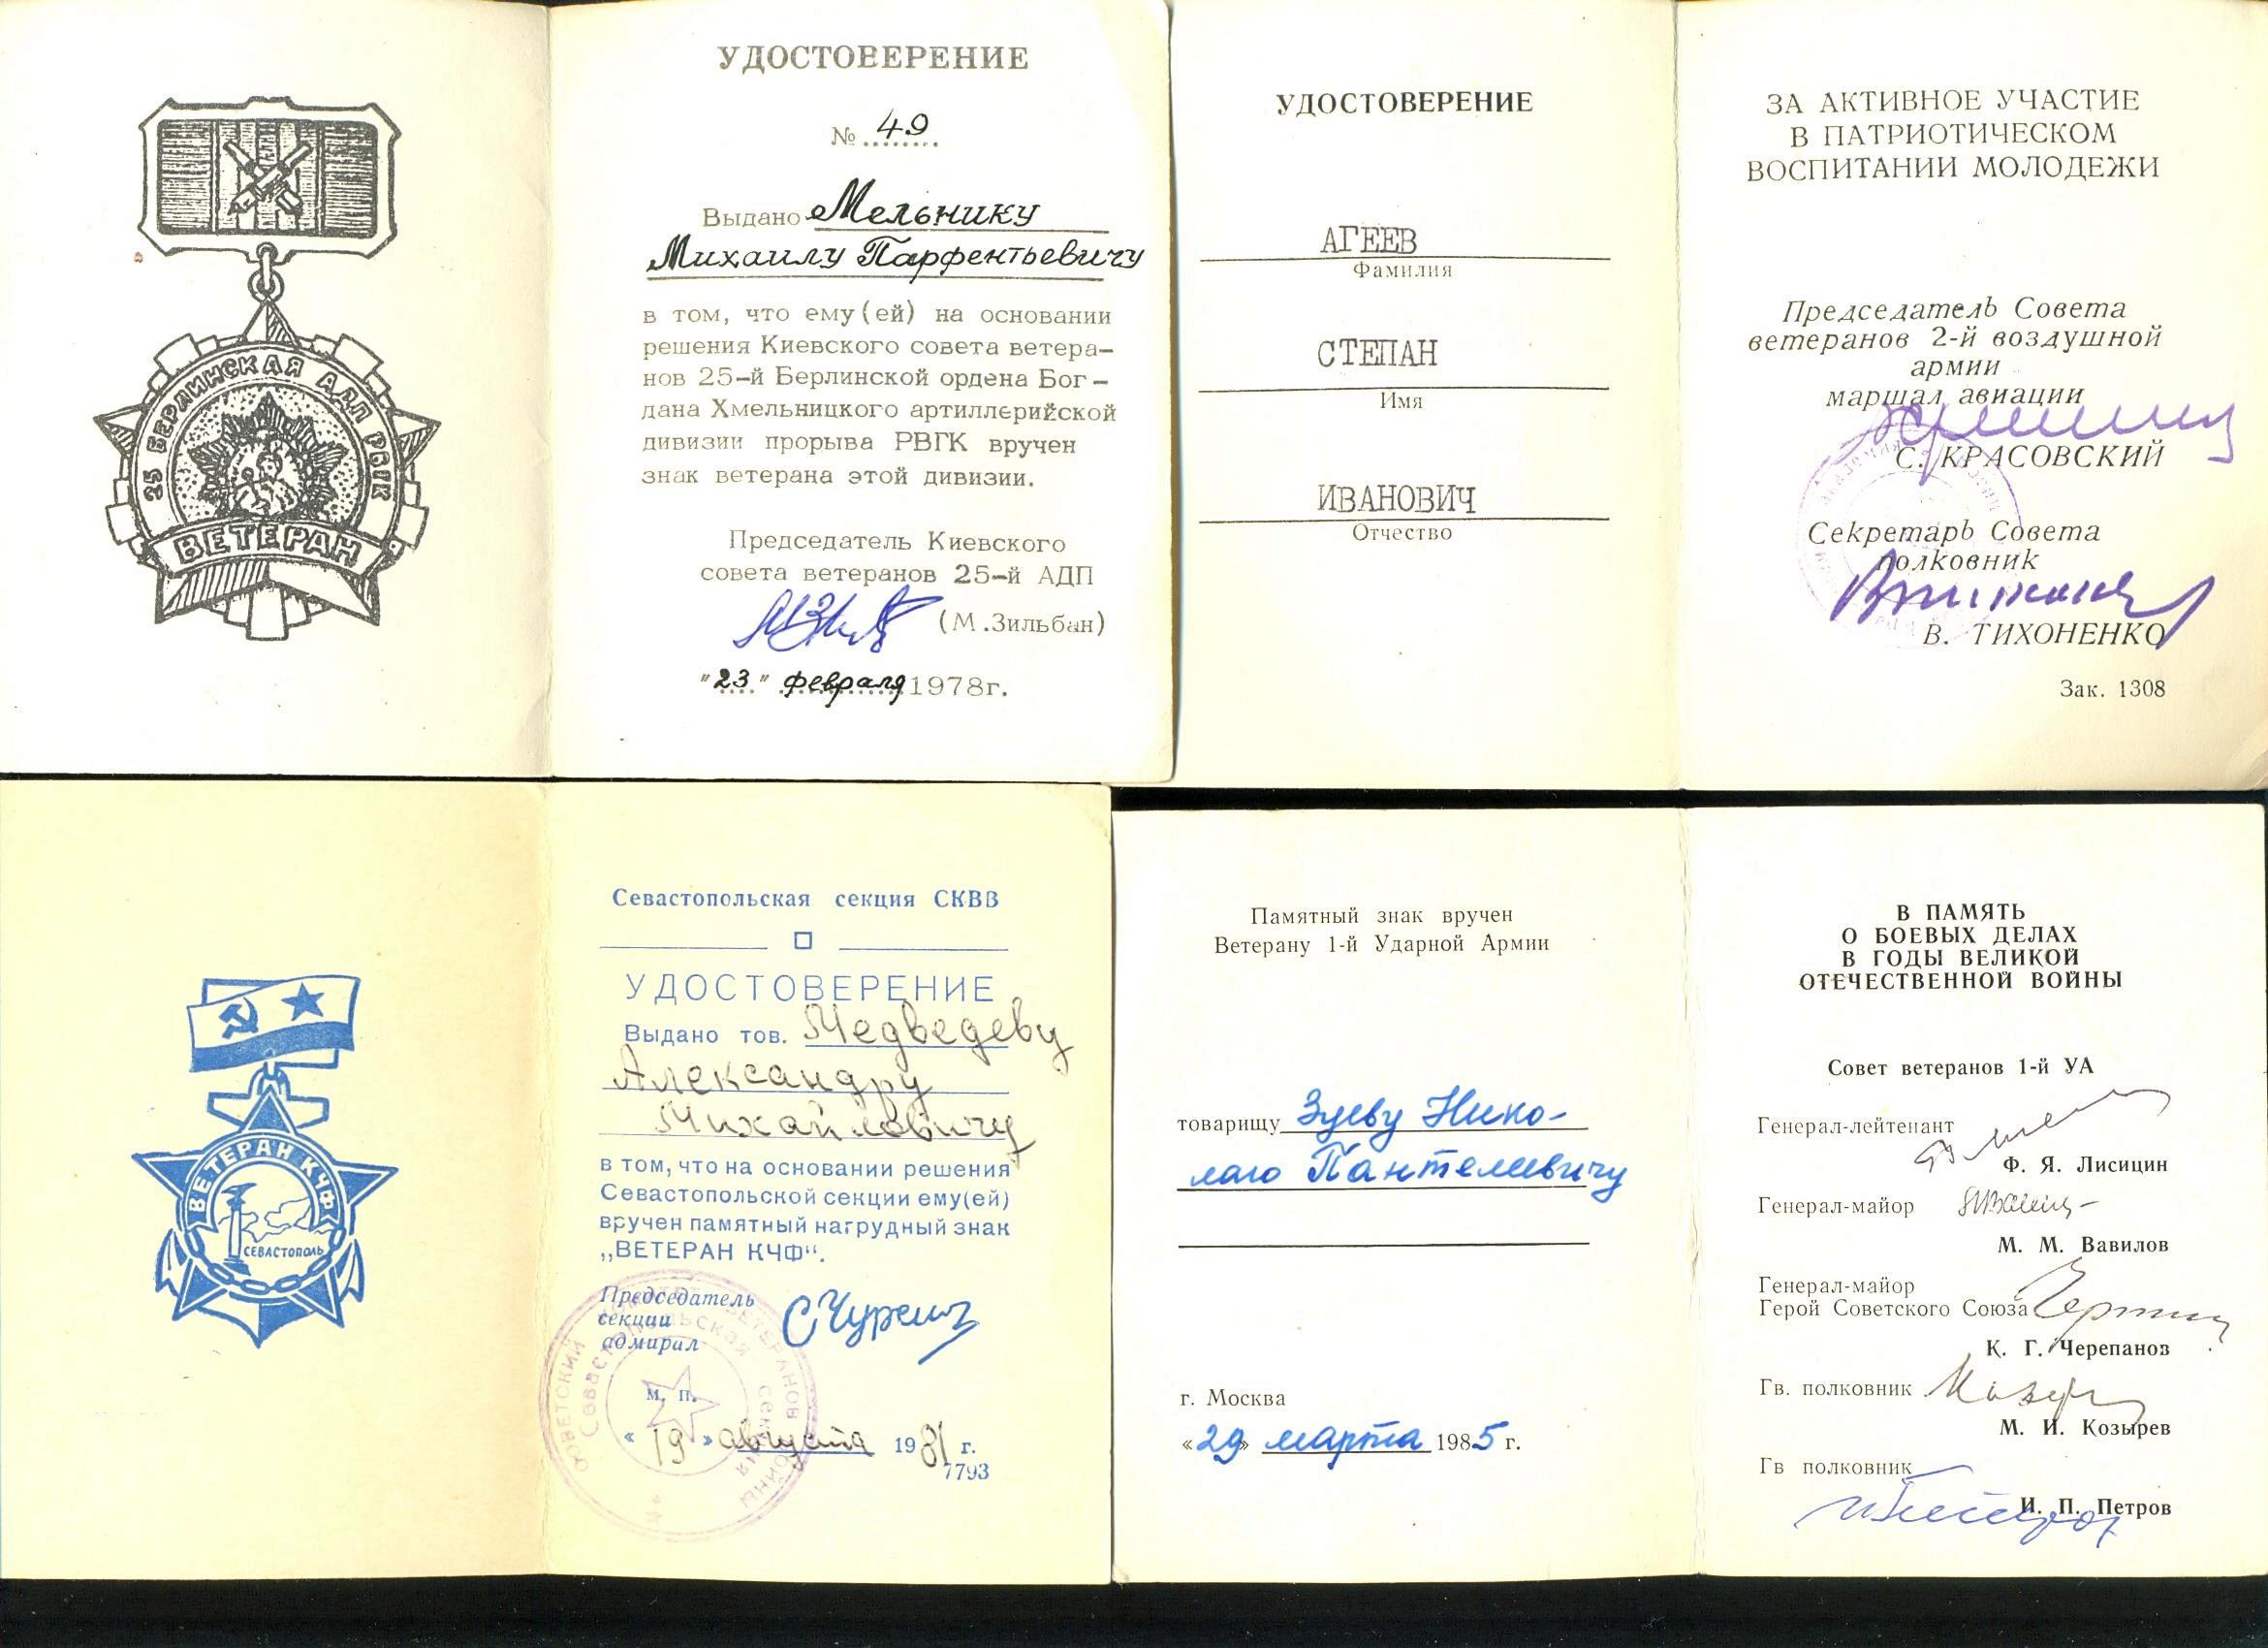 25 БЕРЛИНСКАЯ АДП РВГК
ВЕТЕРАН
УДОСТОВЕРЕНИЕ
№ 49
Выдано Мельнику
Михаилу Парфентьевичу
в том, что ему(ей) на основании
решения Киевского совета ветера-
нов 25-й Берлинской ордена Бог-
дана Хмельницкого артиллерийской
дивизии прорыва РВГК вручен
знак ветерана этой дивизии.
Председатель Киевского
совета ветеранов 25-й АДП
(М.Зильбан)
"23" февраля 1978г.
УДОСТОВЕРЕНИЕ
АГЕЕВ
Фамилия
СТЕПАН
Имя
ИВАНОВИЧ
Отчество
ЗА АКТИВНОЕ УЧАСТИЕ
В ПАТРИОТИЧЕСКОМ
ВОСПИТАНИИ МОЛОДЕЖИ
Председатель Совета
ветеранов 2-й воздушной
армии
маршал авиации
С. КРАСОВСКИЙ
Секретарь Совета
полковник
В. ТИХОНЕНКО
Зак. 1308
ВЕТЕРАН КЧФ
СЕВАСТОПОЛЬ
Севастопольская секция СКВВ
УДОСТОВЕРЕНИЕ
Выдано тов. Медведеву
Александру
Михайловичу
в том, что на основании решения
Севастопольской секции ему(ей)
вручен памятный нагрудный знак
„ВЕТЕРАН КЧФ“.
Председатель
секции
адмирал
СЧурсин
м. п.
« 19 » августа 1981 г.
7793
Памятный знак вручен
Ветерану 1-й Ударной Армии
товарищу Зуеву Нико-
лаю Пантелевичу
г. Москва
«29» марта 1985 г.
В ПАМЯТЬ
О БОЕВЫХ ДЕЛАХ
В ГОДЫ ВЕЛИКОЙ
ОТЕЧЕСТВЕННОЙ ВОЙНЫ
Совет ветеранов 1-й УА
Генерал-лейтенант
Ф. Я. Лисицин
Генерал-майор
М. М. Вавилов
Генерал-майор
Герой Советского Союза
К. Г. Черепанов
Гв. полковник
М. И. Козырев
Гв полковник
И. П. Петров